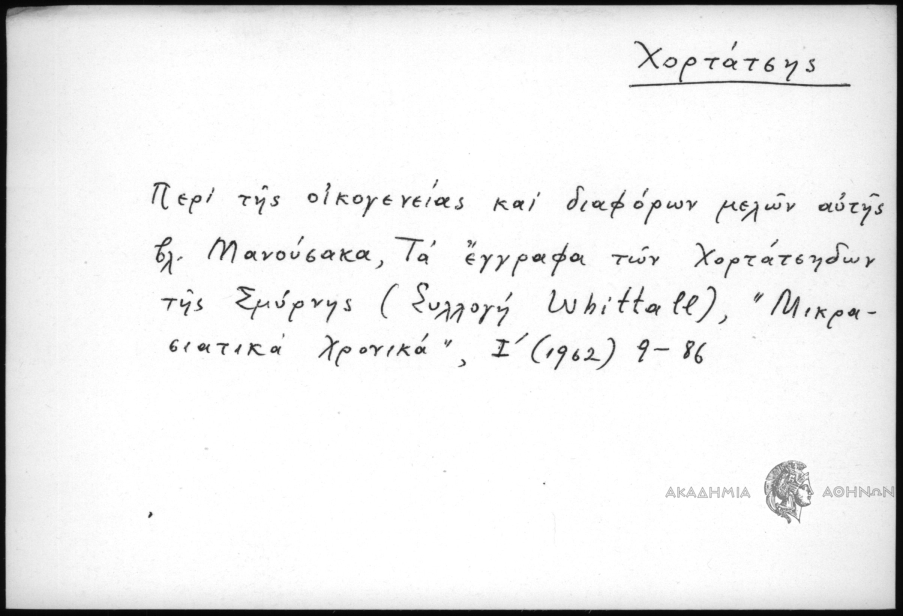 Χορτάτσης
Περί τῆς οἰκογενείας καί διαφόρων μελῶν αὐτῆς
βλ. Μανούσακα, Τά ἔγγραφα τῶν Χορτάτσηδων
τῆς Σμύρνης (Συλλογή Whittall), "Μικρα-
σιατικά Χρονικά", Ι΄ (1962) 9-86
ΑΚΑΔΗΜΙΑ ΑΘΗΝΩΝ